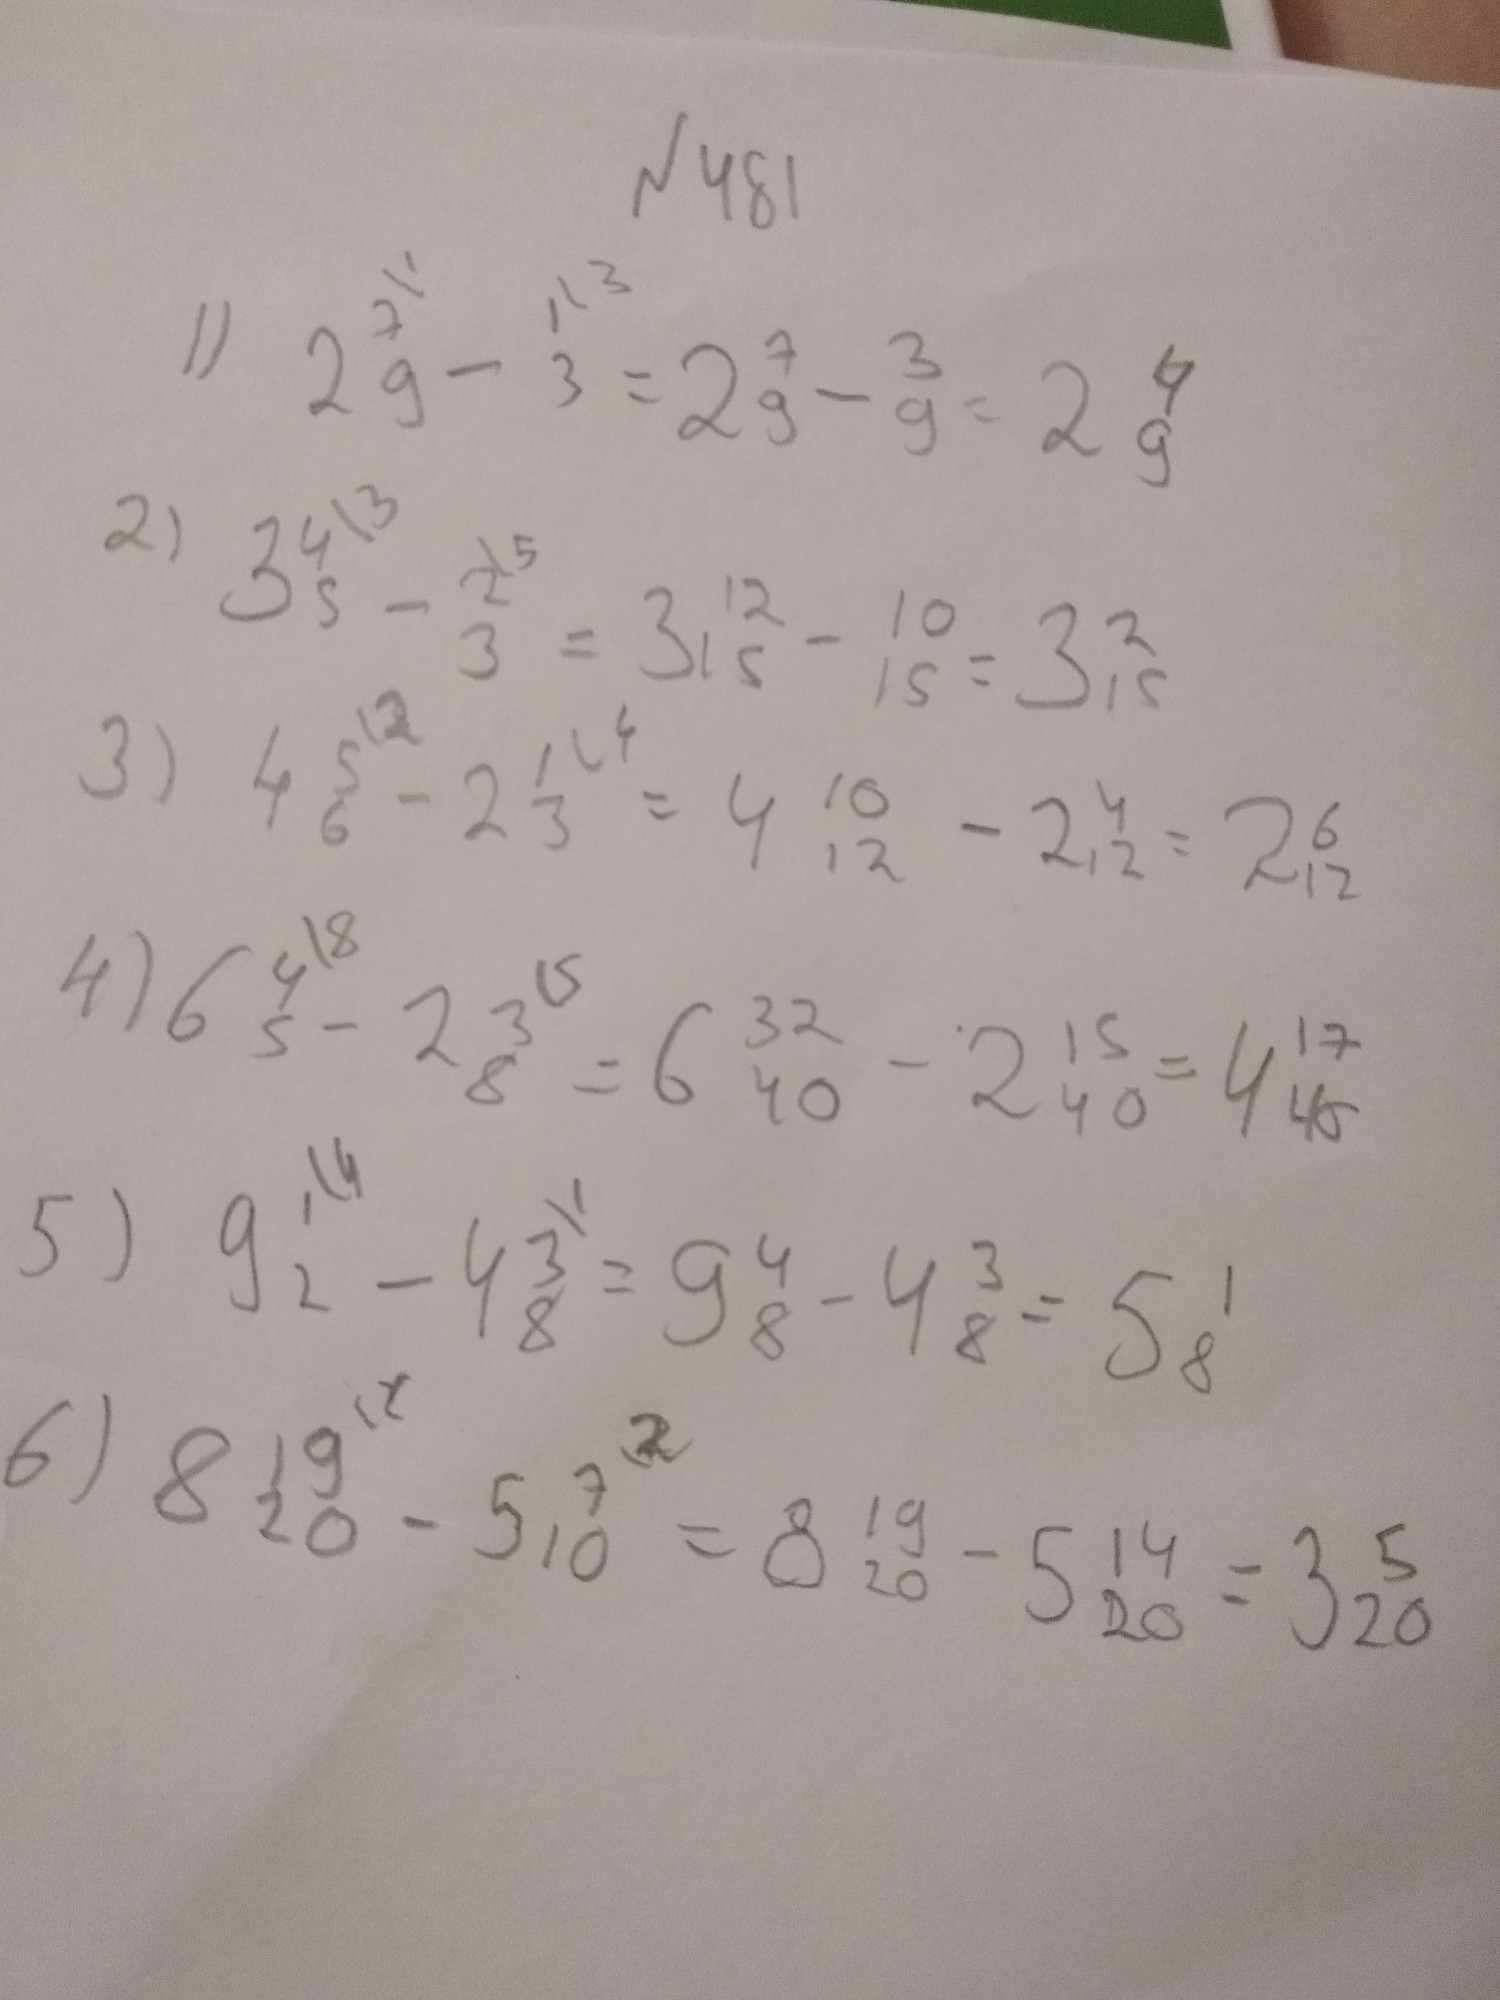 №481
1) 2 7\1/9 - 1\3/3 = 2 7/9 - 3/9 = 2 4/9
2) 3 4\3/5 - 2\5/3 = 3 12/15 - 10/15 = 3 2/15
3) 4 5\2/6 - 2 1\4/3 = 4 10/12 - 2 4/12 = 2 6/12
4) 6 4\8/5 - 2 3\5/8 = 6 32/40 - 2 15/40 = 4 17/40
5) 9 1\4/2 - 4 3\1/8 = 9 4/8 - 4 3/8 = 5 1/8
6) 8 19/20 - 5 7\2/10 = 8 19/20 - 5 14/20 = 3 5/20